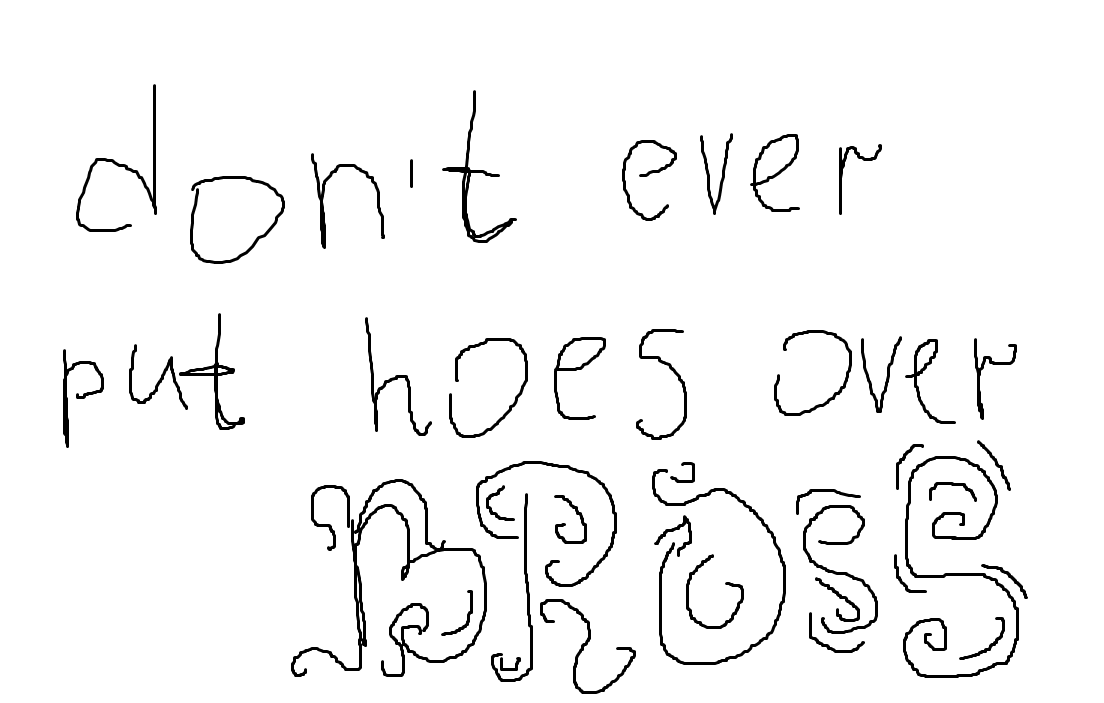 don't ever
put hoes over
BROSS